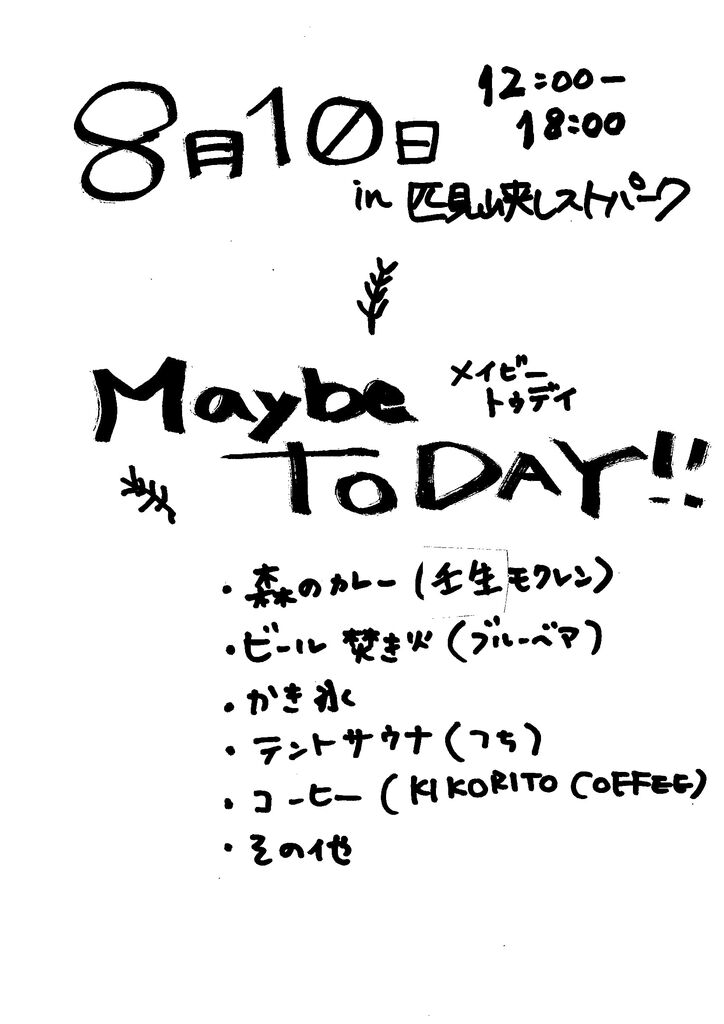 8月10日
12:00ー
18:00
in 匹見峡レストパーク
Maybe
メイビー
トゥデイ
ToDAY!!
・森のカレー(壬生モクレン)
・ビール 焚き火(ブルーベア)
・かき氷
・テントサウナ(つち)
・コーヒー(KIKORITO COFFEE)
・その他